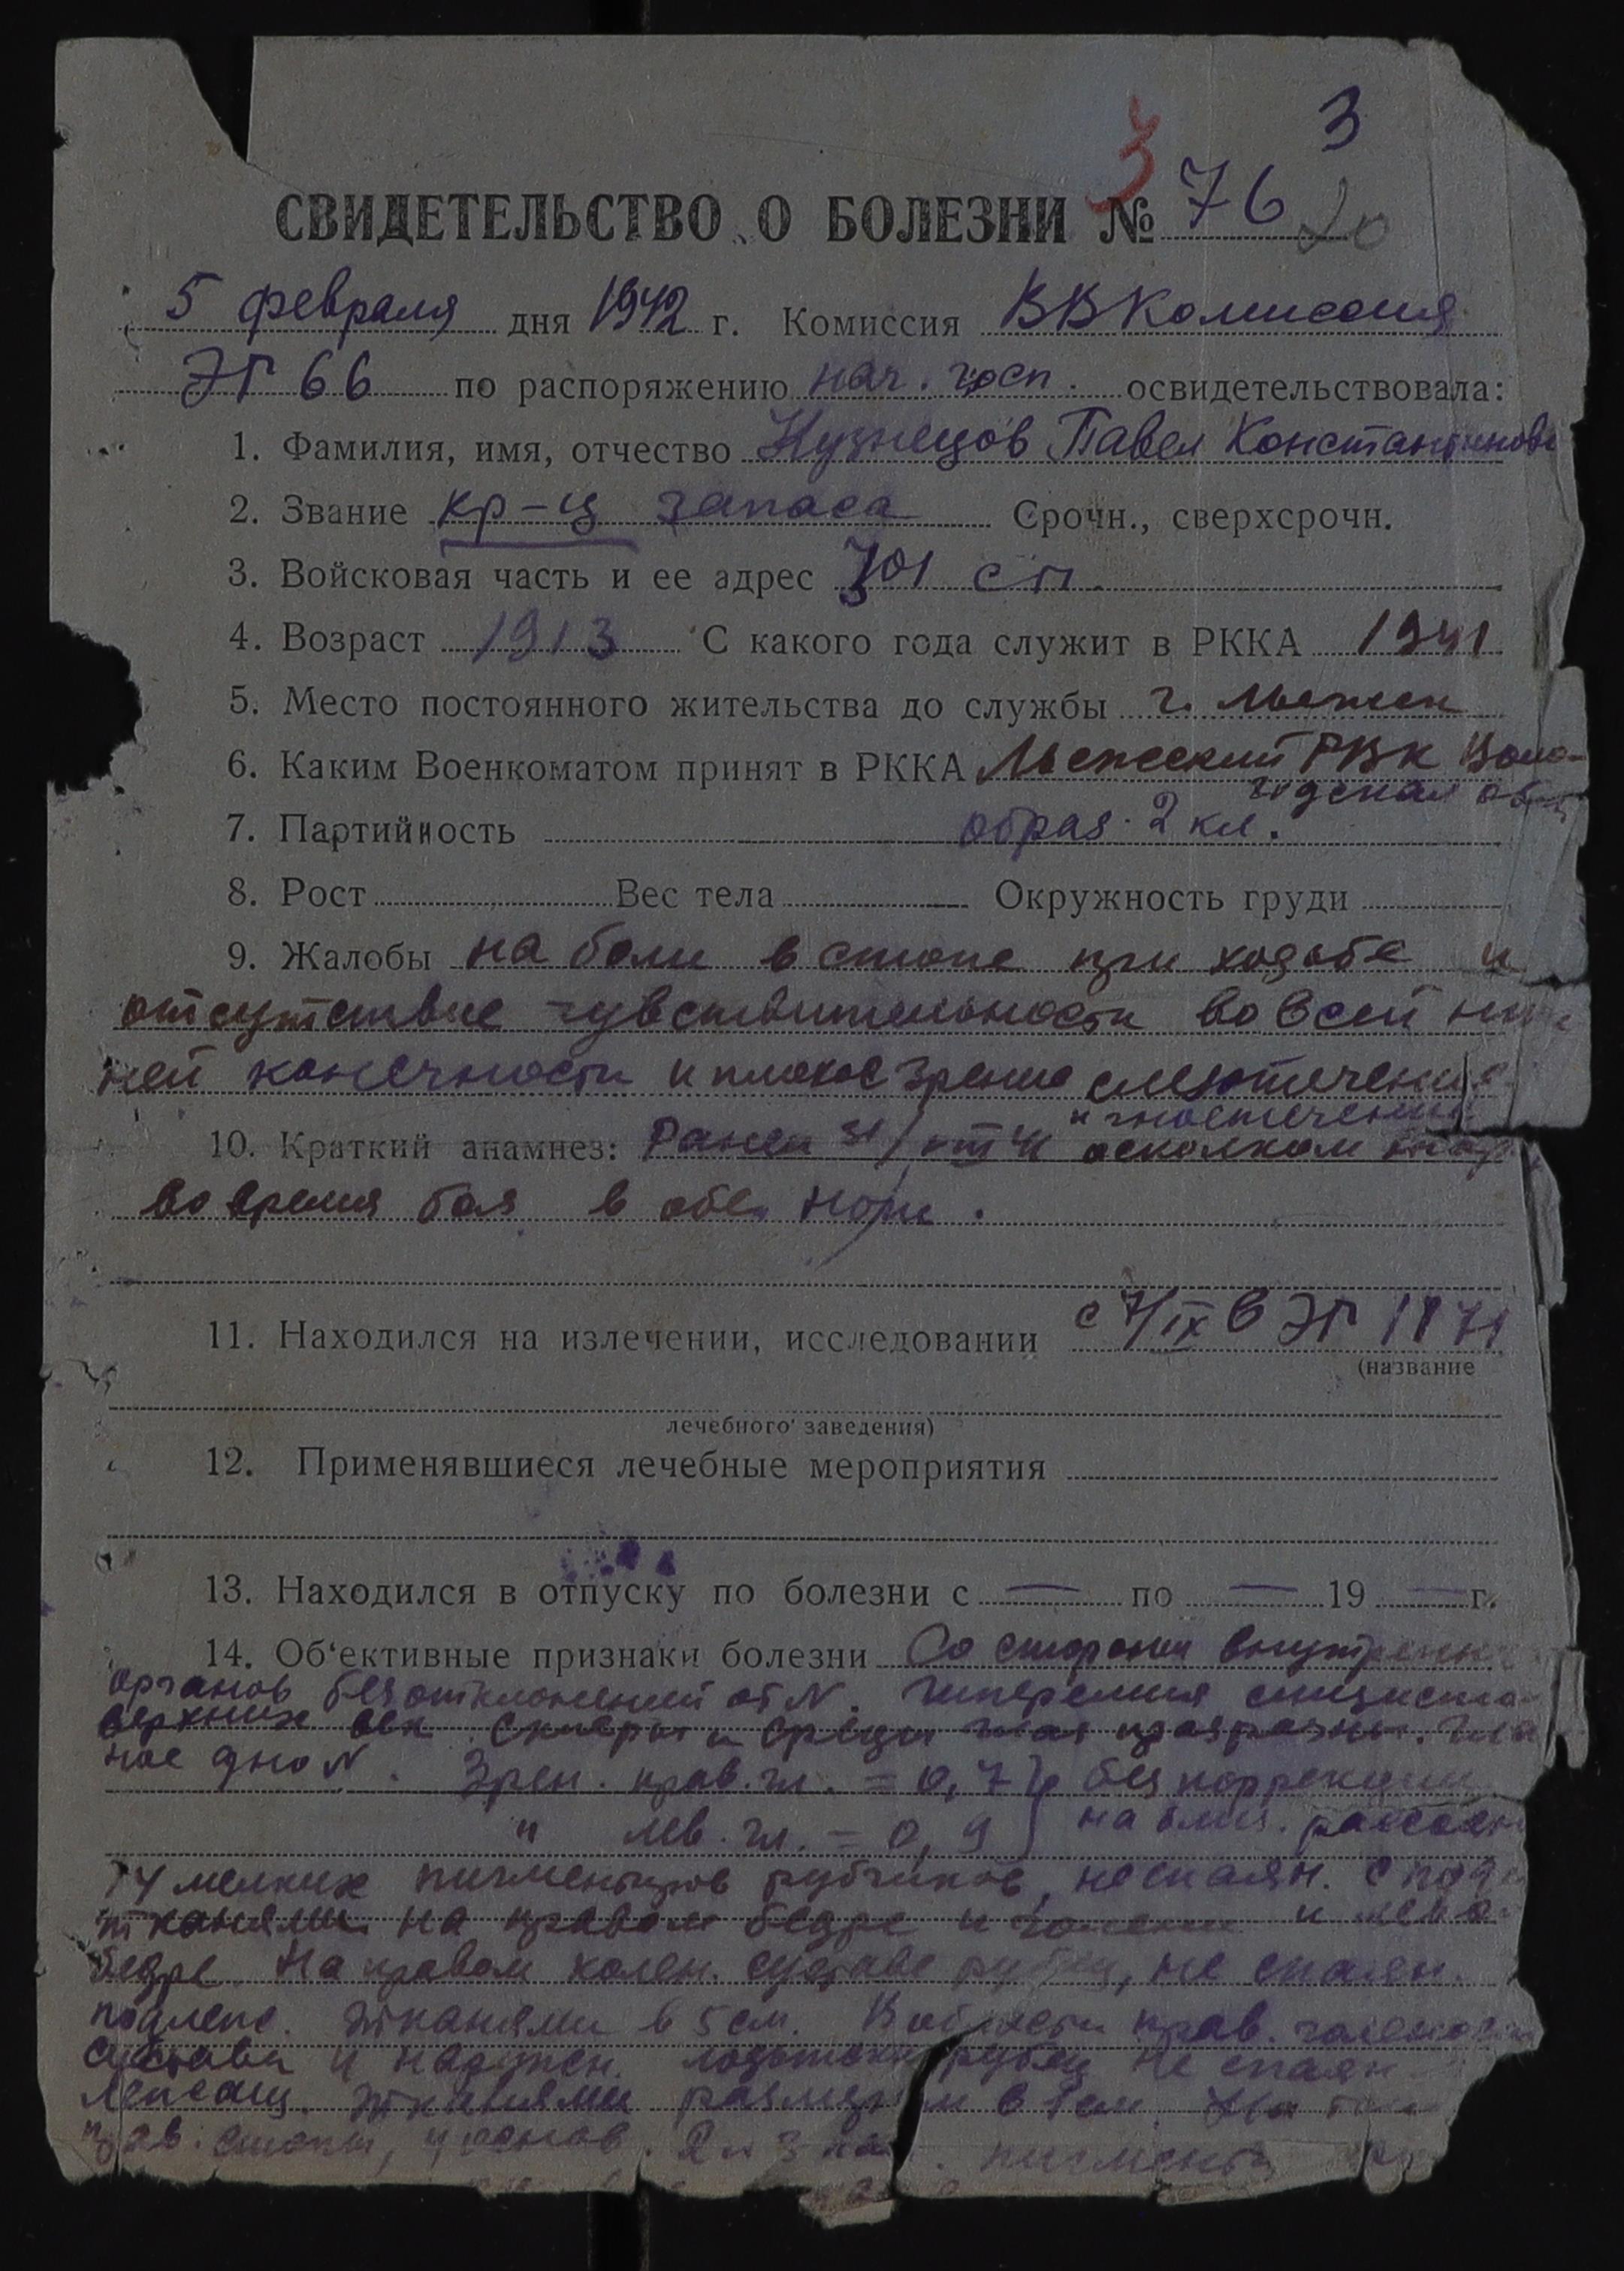 3
3
СВИДЕТЕЛЬСТВО О БОЛЕЗНИ № 76 20
5 февраля дня 1942 г. Комиссия ВВКомиссия
ЭГ 66 по распоряжению нач. госп. освидетельствовала:
1. Фамилия, имя, отчество Кузнецов Павел Константинов
2. Звание кр-ц запаса Срочн., сверхсрочн.
3. Войсковая часть и ее адрес 301 сп.
4. Возраст 1913 С какого года служит в РККА 1941
5. Место постоянного жительства до службы г.
6. Каким Военкоматом принят в РККА РВК Воло-
годская обл
7. Партийность образ. 2 кл.
8. Рост Вес тела Окружность груди
9. Жалобы на боли в стопе при ходьбе и
отсутствие чувствительности во всей ниж
ней конечности и плохое зрение слезотечение
и гноетечение
10. Краткий анамнез: Ранен осколком
во время боя в обе ноги.
11. Находился на излечении, исследовании с 7/IX в ЭГ 1171
(название
лечебного заведения)
12. Применявшиеся лечебные мероприятия
13. Находился в отпуску по болезни с — по — 19 — г.
14. Об'ективные признаки болезни Со стороны внутренн
органов без отклонений от N. Гиперемия слизиста
верхних век. Склеры и среды глаз прозрачны. Гла
ное дно N. Зрен. прав. гл. = 0,7 } без коррекции
" лев. гл. = 0,9 } на близ. расстоян
14 мелких рубчиков, неспаян. с под
тканями на правом бедре и голени и лево
бедре. На правом колен. суставе рубец, не спаян.
подлеж. тканями в 5 см. В области прав. голеност
сустава и наружн. лодыжки рубец не спаян
лежащ. тканями размером в см. На
прав. стопы, у основ. 2 и 3 пигмент